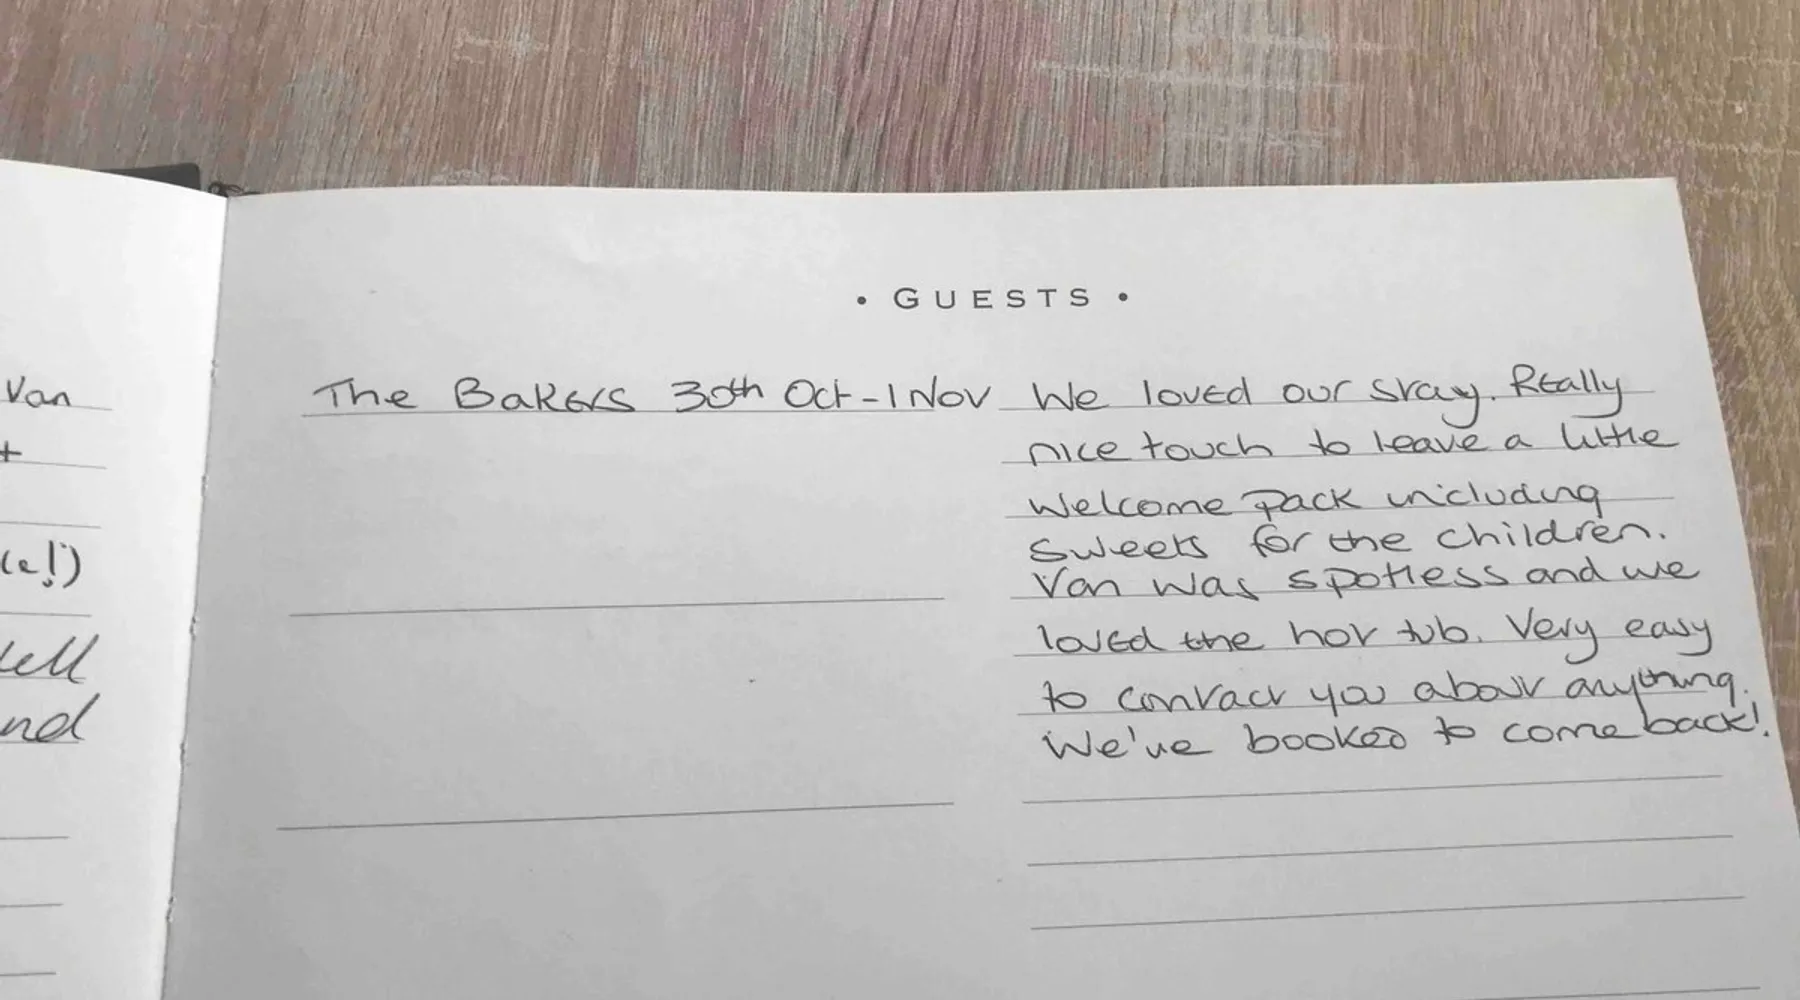 Van
+
(e!)
nd
• GUESTS •
The Bakers 30th Oct-1Nov We loved our stay. Really
nice touch to leave a little
welcome pack including
sweets for the children.
Van was spotless and we
loved the hot tub. Very easy
to contact you about anything.
We've booked to come back!